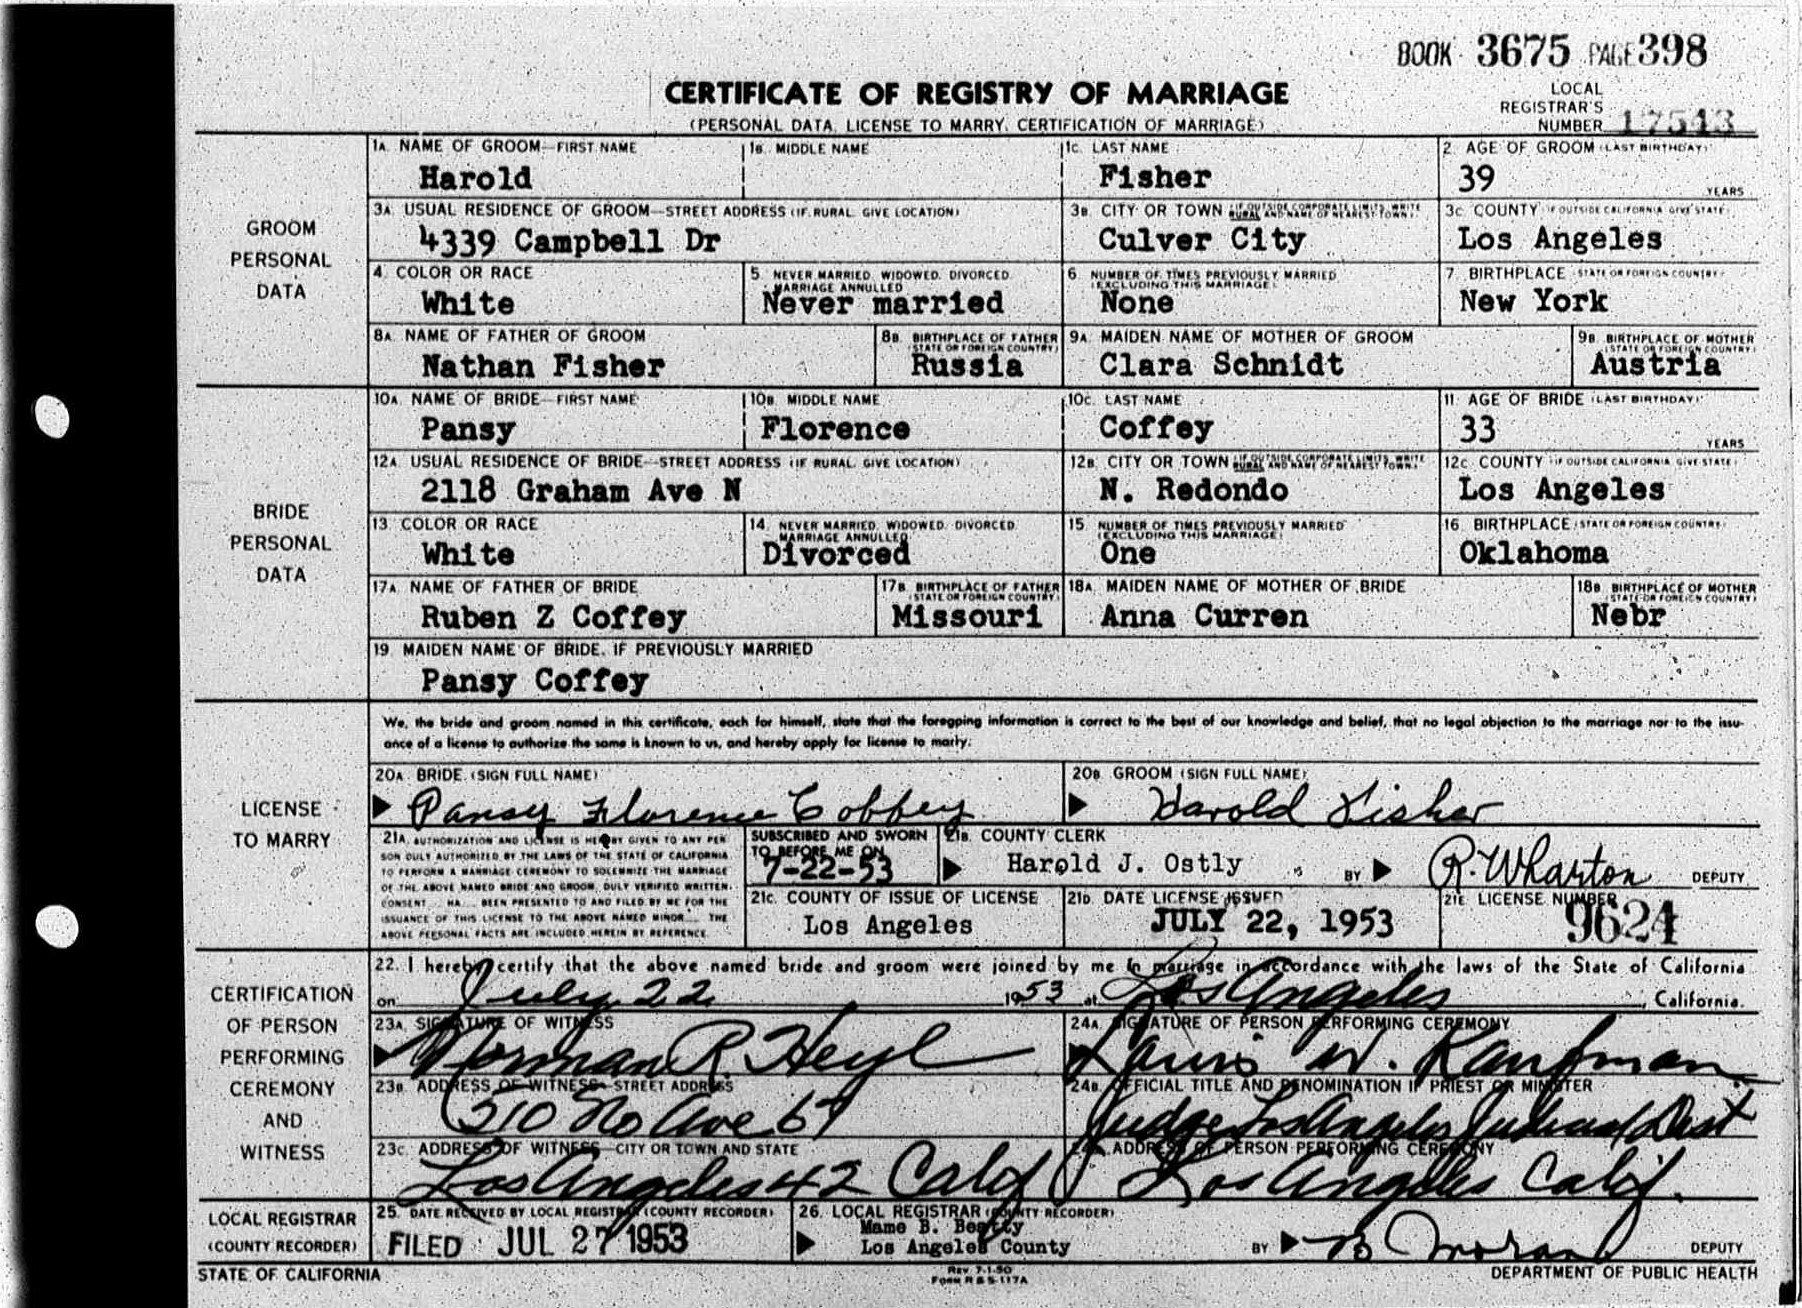 BOOK 3675 PAGE 398
CERTIFICATE OF REGISTRY OF MARRIAGE
(PERSONAL DATA, LICENSE TO MARRY, CERTIFICATION OF MARRIAGE)
LOCAL REGISTRAR'S NUMBER 17543
GROOM PERSONAL DATA
1A. NAME OF GROOM—FIRST NAME
Harold
1B. MIDDLE NAME
1C. LAST NAME
Fisher
2. AGE OF GROOM (LAST BIRTHDAY)
39 YEARS
3A. USUAL RESIDENCE OF GROOM—STREET ADDRESS (IF RURAL, GIVE LOCATION)
4339 Campbell Dr
3B. CITY OR TOWN (IF OUTSIDE CORPORATE LIMITS, WRITE RURAL AND NAME OF NEAREST TOWN)
Culver City
3C. COUNTY (IF OUTSIDE CALIFORNIA, GIVE STATE)
Los Angeles
4. COLOR OR RACE
White
5. NEVER MARRIED, WIDOWED, DIVORCED, MARRIAGE ANNULLED
Never married
6. NUMBER OF TIMES PREVIOUSLY MARRIED (EXCLUDING THIS MARRIAGE)
None
7. BIRTHPLACE (STATE OR FOREIGN COUNTRY)
New York
8A. NAME OF FATHER OF GROOM
Nathan Fisher
8B. BIRTHPLACE OF FATHER (STATE OR FOREIGN COUNTRY)
Russia
9A. MAIDEN NAME OF MOTHER OF GROOM
Clara Schnidt
9B. BIRTHPLACE OF MOTHER (STATE OR FOREIGN COUNTRY)
Austria
BRIDE PERSONAL DATA
10A. NAME OF BRIDE—FIRST NAME
Pansy
10B. MIDDLE NAME
Florence
10C. LAST NAME
Coffey
11. AGE OF BRIDE (LAST BIRTHDAY)
33 YEARS
12A. USUAL RESIDENCE OF BRIDE—STREET ADDRESS (IF RURAL, GIVE LOCATION)
2118 Graham Ave N
12B. CITY OR TOWN (IF OUTSIDE CORPORATE LIMITS, WRITE RURAL AND NAME OF NEAREST TOWN)
N. Redondo
12C. COUNTY (IF OUTSIDE CALIFORNIA, GIVE STATE)
Los Angeles
13. COLOR OR RACE
White
14. NEVER MARRIED, WIDOWED, DIVORCED, MARRIAGE ANNULLED
Divorced
15. NUMBER OF TIMES PREVIOUSLY MARRIED (EXCLUDING THIS MARRIAGE)
One
16. BIRTHPLACE (STATE OR FOREIGN COUNTRY)
Oklahoma
17A. NAME OF FATHER OF BRIDE
Ruben Z Coffey
17B. BIRTHPLACE OF FATHER (STATE OR FOREIGN COUNTRY)
Missouri
18A. MAIDEN NAME OF MOTHER OF BRIDE
Anna Curren
18B. BIRTHPLACE OF MOTHER (STATE OR FOREIGN COUNTRY)
Nebr
19. MAIDEN NAME OF BRIDE, IF PREVIOUSLY MARRIED
Pansy Coffey
LICENSE TO MARRY
We, the bride and groom named in this certificate, each for himself, state that the foregoing information is correct to the best of our knowledge and belief, that no legal objection to the marriage nor to the issu-
ance of a license to authorize the same is known to us, and hereby apply for license to marry.
20A. BRIDE (SIGN FULL NAME)
Pansy Florence Coffey
20B. GROOM (SIGN FULL NAME)
Harold Fisher
21A. AUTHORIZATION AND LICENSE IS HEREBY GIVEN TO ANY PER
SON DULY AUTHORIZED BY THE LAWS OF THE STATE OF CALIFORNIA
TO PERFORM A MARRIAGE CEREMONY TO SOLEMNIZE THE MARRIAGE
OF THE ABOVE NAMED BRIDE AND GROOM, DULY VERIFIED WRITTEN.
CONSENT HA BEEN PRESENTED TO AND FILED BY ME FOR THE
ISSUANCE OF THIS LICENSE TO THE ABOVE NAMED MINOR THE
ABOVE PERSONAL FACTS ARE INCLUDED HEREIN BY REFERENCE.
SUBSCRIBED AND SWORN TO BEFORE ME ON
7-22-53
21B. COUNTY CLERK
Harold J. Ostly
BY R. Wharton DEPUTY
21C. COUNTY OF ISSUE OF LICENSE
Los Angeles
21D. DATE LICENSE ISSUED
JULY 22, 1953
21E. LICENSE NUMBER
9624
CERTIFICATION OF PERSON PERFORMING CEREMONY AND WITNESS
22. I hereby certify that the above named bride and groom were joined by me in marriage in accordance with the laws of the State of California
on July 22 1953 at Los Angeles, California.
23A. SIGNATURE OF WITNESS
Norman R. Heyl
24A. SIGNATURE OF PERSON PERFORMING CEREMONY
Louis W. Kaufman
23B. ADDRESS OF WITNESS—STREET ADDRESS
510 No Ave 67
24B. OFFICIAL TITLE AND DENOMINATION IF PRIEST OR MINISTER
Judge Los Angeles Judicial Dist
23C. ADDRESS OF WITNESS—CITY OR TOWN AND STATE
Los Angeles 42 Calif
24C. ADDRESS OF PERSON PERFORMING CEREMONY
Los Angeles Calif.
LOCAL REGISTRAR (COUNTY RECORDER)
25. DATE RECEIVED BY LOCAL REGISTRAR (COUNTY RECORDER)
FILED JUL 27 1953
26. LOCAL REGISTRAR (COUNTY RECORDER)
Mame B. Beatty
Los Angeles County
BY B Moran DEPUTY
STATE OF CALIFORNIA
Rev. 7-1-50
FORM R & S-117A
DEPARTMENT OF PUBLIC HEALTH